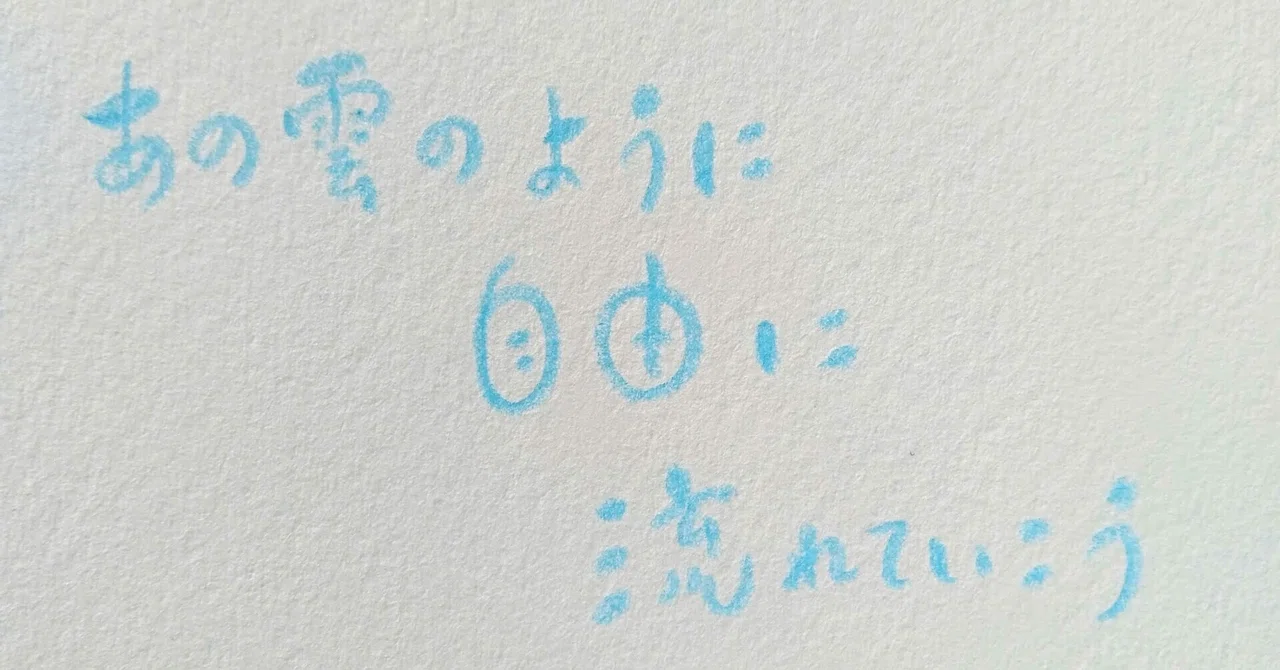 あの雲のように
自由に
流れていこう